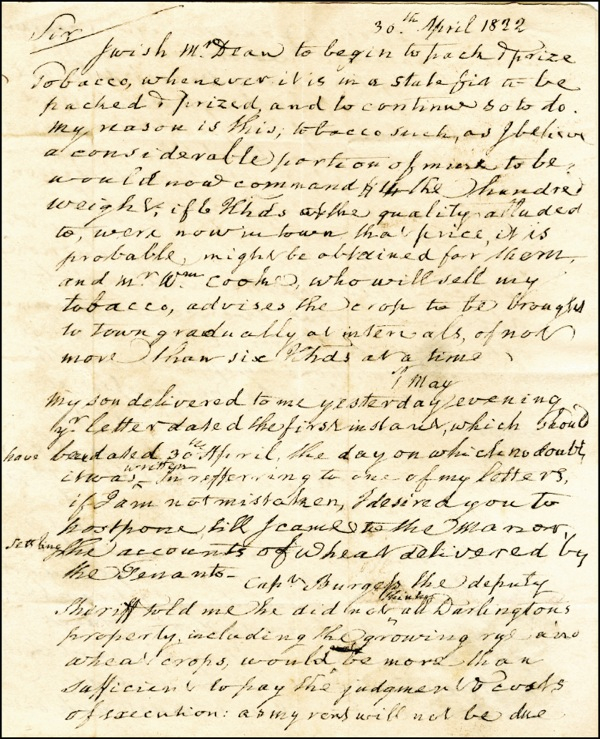 30.th April 1832
Sir
I wish Mr Dean to begin to pack & prize
Tobacco, whenever it is in a state fit to be
packed & prized, and to continue so to do.
my reason is this; tobacco such, as I believe
a considerable portion of mine to be,
would now command $14 the hundred
weight, if 6 Hhds of the quality alluded
to, were now in town that price, it is
probable, might be obtained for them,
and mr Wm Cooke, who will sell my
tobacco, advises the crop to be brought
to town gradually at intervals, of not
more than six Hhds at a time
1 May
my son delivered to me yesterday evening
yr letter dated the first instant, which should
have been dated 30th April, the day on which no doubt,
it was written. In refferring to one of my letters,
if I am not mistaken, I desired you to
postpone, till I came to the Manor,
settling the accounts of wheat delivered by
the Tenants—
Capt Burgess the deputy
Sheriff told me he did not think all Darlingtons
property, including the growing rye and
wheat crops, would be more than
sufficient to pay the judgment & costs
of execution: as my rent will not be due